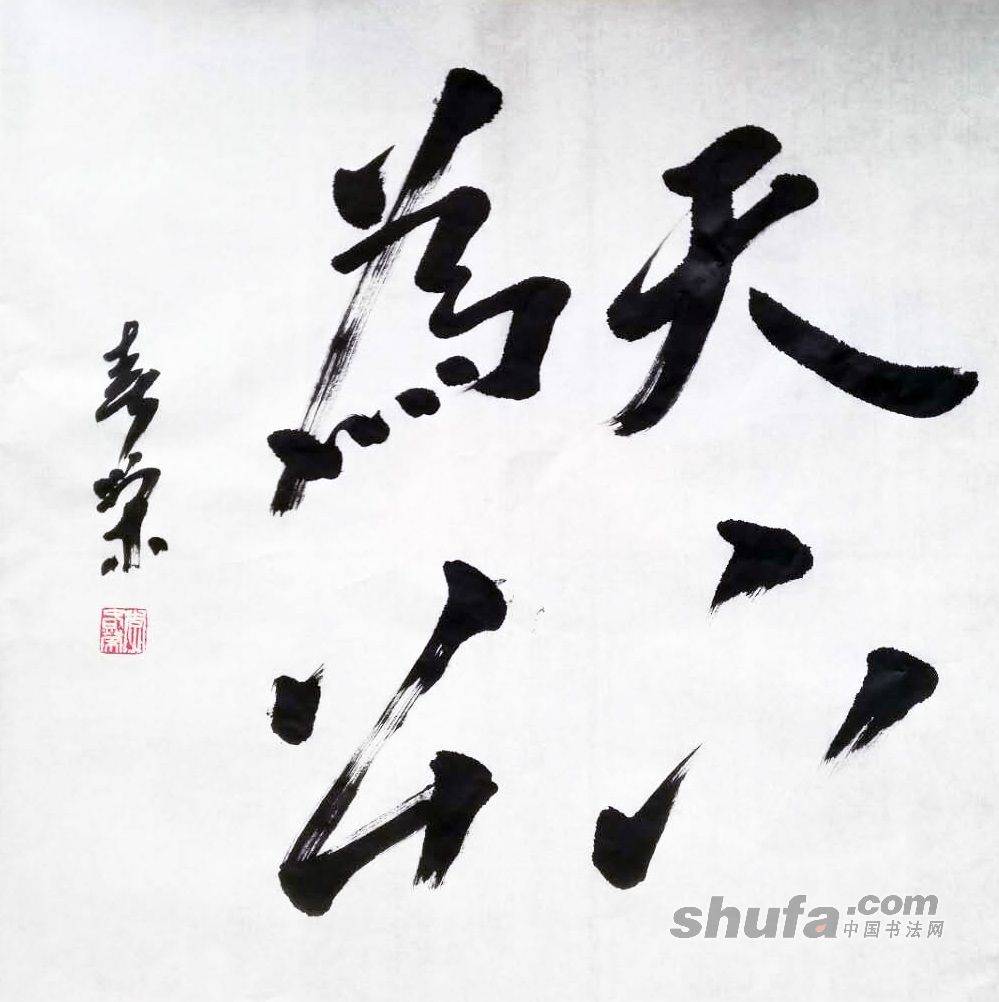 天下
為公
shufa.com
中国书法网